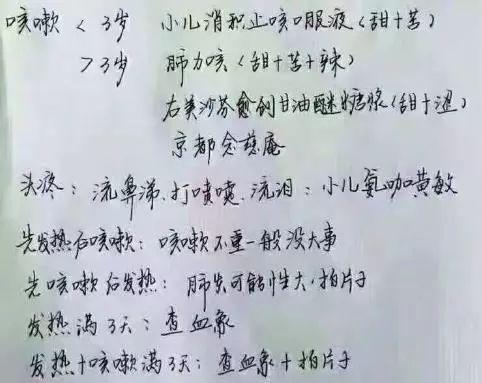 咳嗽 < 3岁 小儿消积止咳口服液(甜+苦)
> 3岁 肺力咳(甜+苦+辣)
右美沙芬愈创甘油醚糖浆(甜+涩)
京都念慈庵
头疼:流鼻涕.打喷嚏.流泪:小儿氨咖黄敏
先发热后咳嗽:咳嗽不重一般没大事
先咳嗽后发热:肺炎可能性大.拍片子
发热满3天:查血象
发热+咳嗽满3天:查血象+拍片子